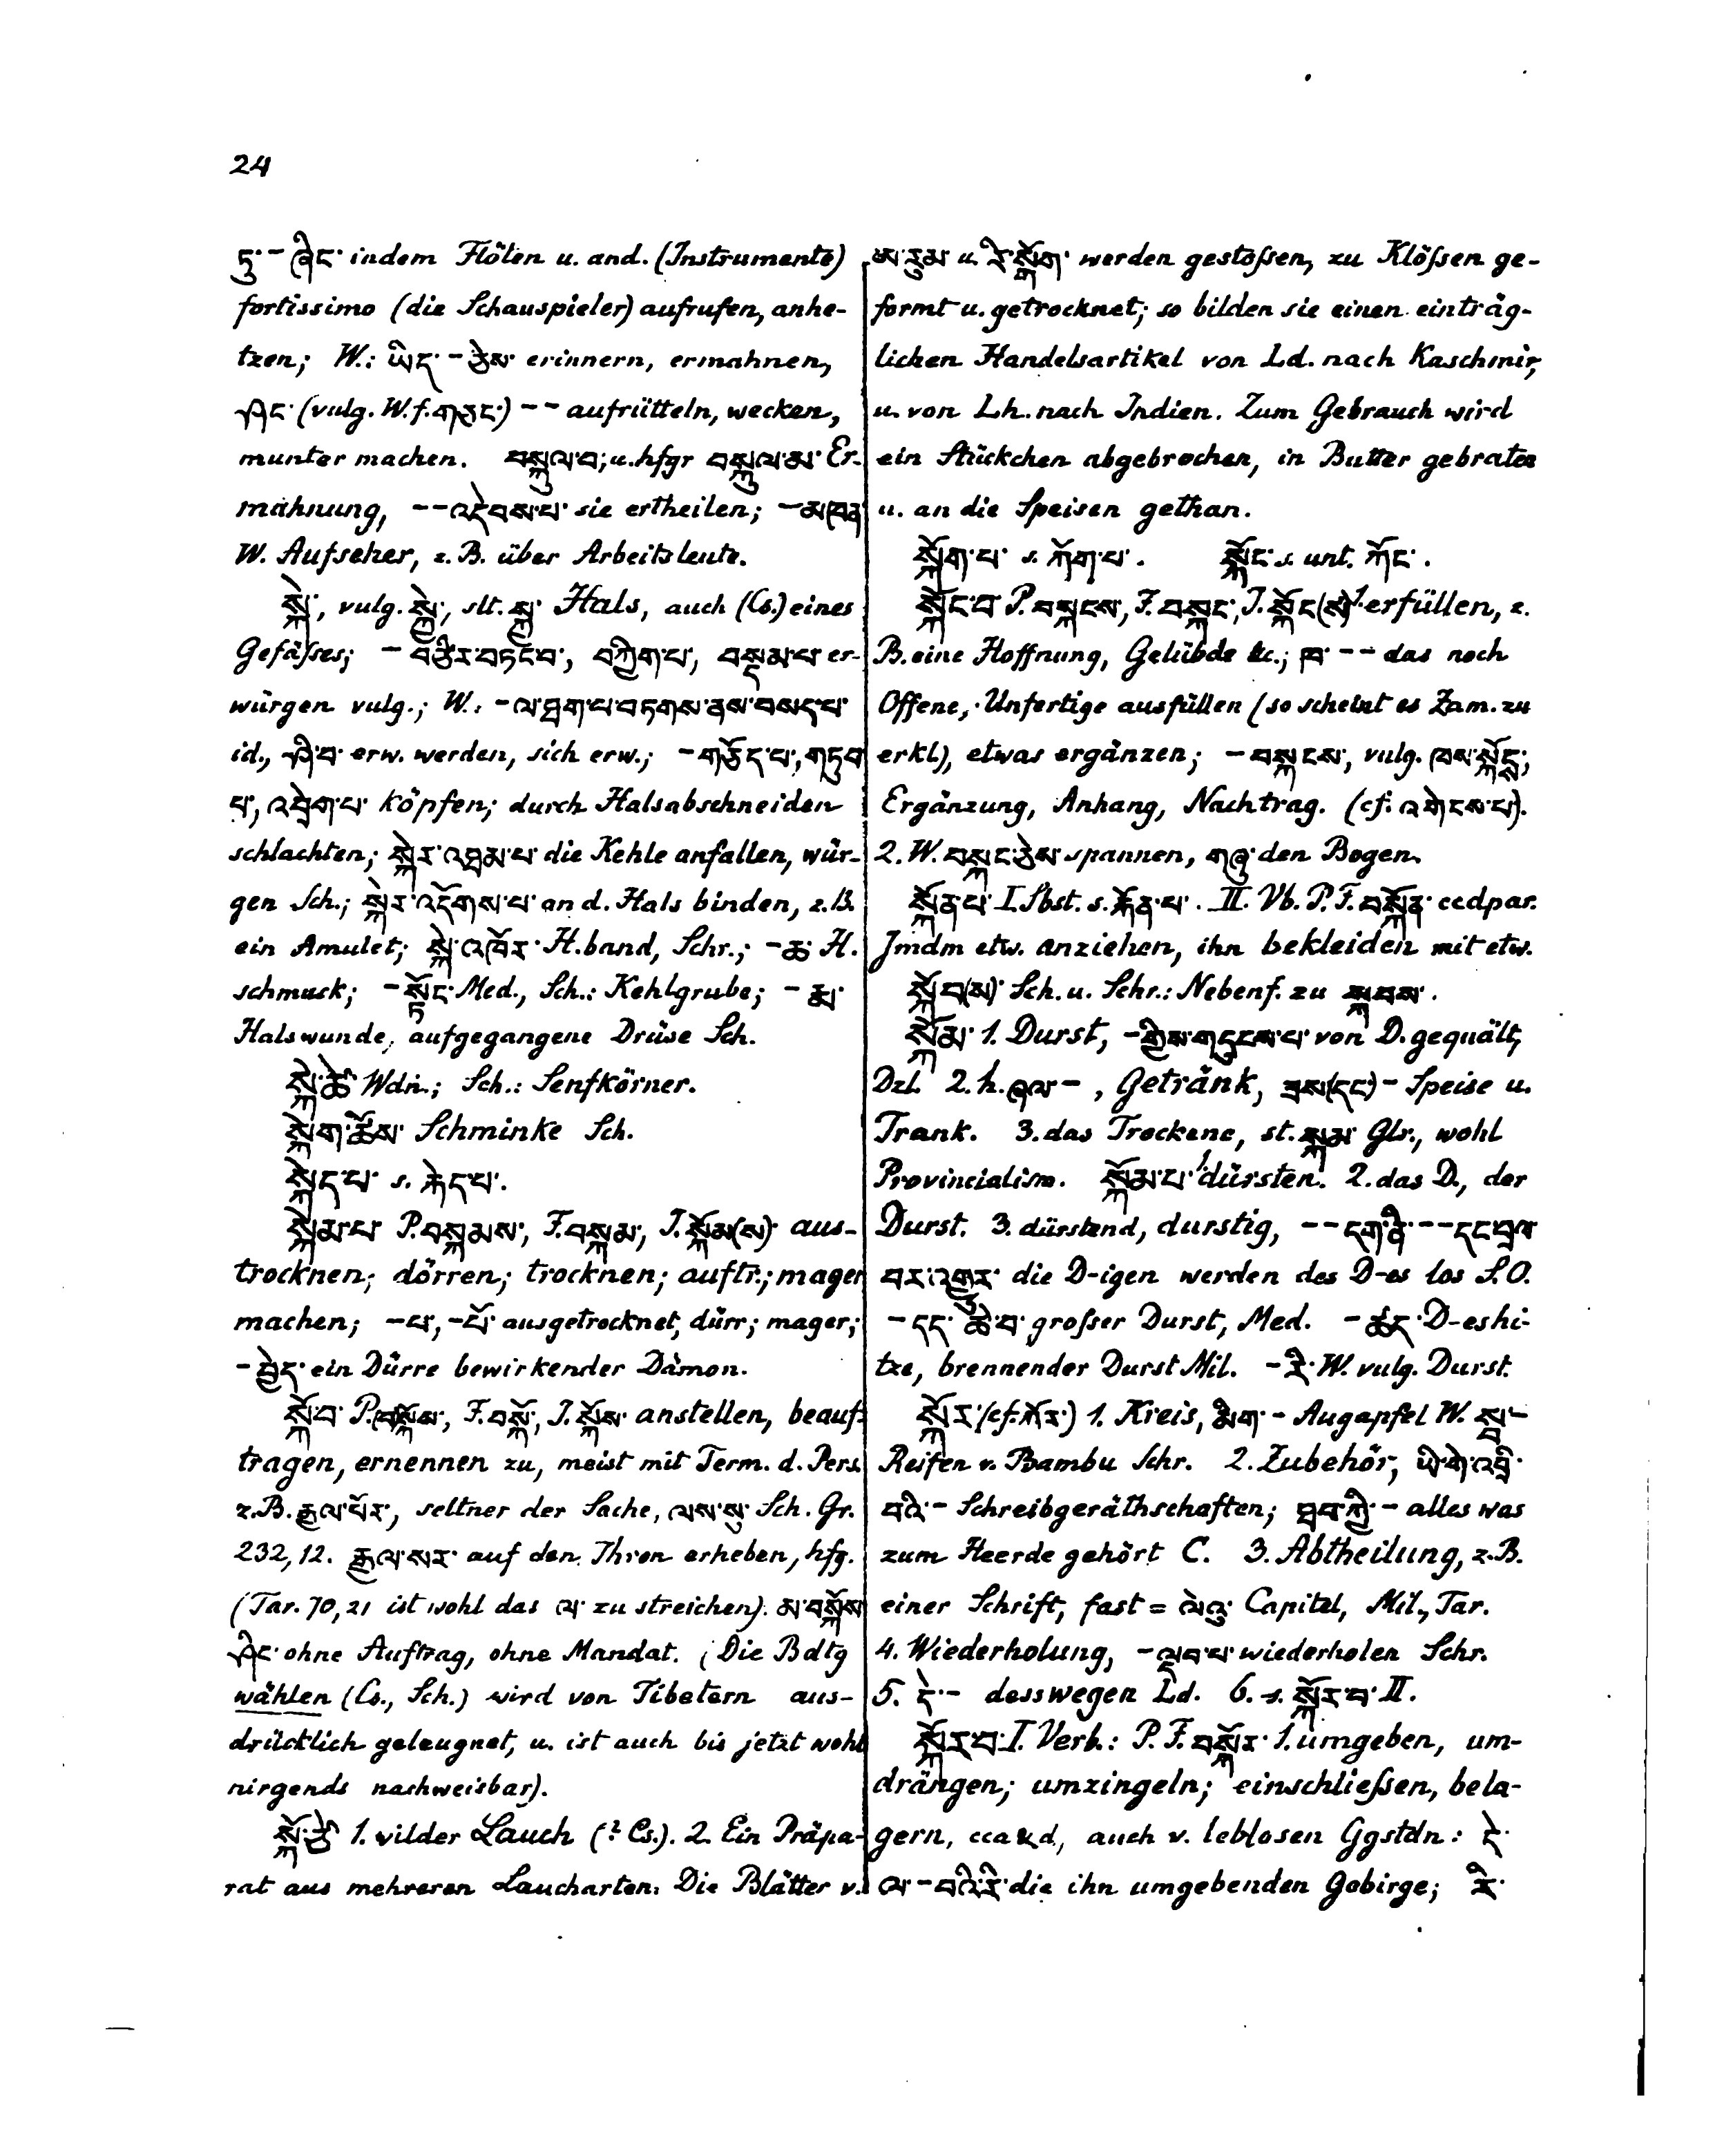 24
ཏུ་ – ཞིང་ indem Flöten u. and. (Instrumente)
fortissimo (die Schauspieler) aufrufen, anhe-
tzen; W.: ཡིད་ – ཅེས་ erinnern, ermahnen,
ཤང་ (vulg. W. f. གཅང་) – – aufrütteln, wecken,
munter machen. བསྐུལ་བ་; u. hfgr བསྐུལ་མ་ Er-
mahnung, – – འདེབས་པ་ sie ertheilen; – མཁན
W. Aufseher, z. B. über Arbeitsleute.
སྐེ་, vulg. སྐྱེ་, slt. སྐྱ་ Hals, auch (Cs.) eines
Gefässes; – བཙིར་བ་, བཀྱིག་པ་, བསྡམ་པ་ er-
würgen vulg.; W.: – ལ་ཐག་པ་བཏགས་ནས་བསད་པ་
id., ཤི་བ་ erw. werden, sich erw.; – གཅོད་པ་, གཏུབ
པ་, འབྲེག་པ་ köpfen; durch Halsabschneiden
schlachten; སྐེར་འཐམ་པ་ die Kehle anfallen, wür-
gen Sch.; སྐེར་འདོགས་པ་ an d. Hals binden, z. B.
ein Amulet; སྐེ་འཁོར་ H.band, Schr.; – ཆ་ H.
schmuck; – སྟོང་ Med., Sch.: Kehlgrube; – རྨ་
Halswunde, aufgegangene Drüse Sch.
སྐེ་ཚེ་ Wdn.; Sch.: Senfkörner.
སྐེག་ཚོས་ Schminke Sch.
སྐེད་པ་ s. རྐེད་པ་.
སྐེམ་པ་ P. བསྐམས་, F. བསྐམ་, J. སྐོམ(ས)་ aus-
trocknen; dörren; trocknen; auftr.; mager
machen; – པ་, – པོ་ ausgetrocknet, dürr; mager;
– བྱེད་ ein Dürre bewirkender Dämon.
སྐོ་བ་ P. བསྐོས་, F. བསྐོ་, J. སྐོས་ anstellen, beauf-
tragen, ernennen zu, meist mit Term. d. Pers.
z. B. རྒྱལ་པོར་, seltner der Sache, ལས་སུ་ Sch. Gr.
232, 12. རྒྱལ་སར་ auf den Thron erheben, hfg.
(Tar. 70, 21 ist wohl das ལ་ zu streichen). མ་བསྐོས
ཤིང་ ohne Auftrag, ohne Mandat. (Die Bdtg
wählen (Cs., Sch.) wird von Tibetern aus-
drücklich geleugnet, u. ist auch bis jetzt wohl
nirgends nachweisbar).
སྐོ་ཙེ་ 1. wilder Lauch (? Cs.). 2. Ein Präpa-
rat aus mehreren Laucharten. Die Blätter v.
u. རི་སྒོག་ werden gestossen, zu Klössen ge-
formt u. getrocknet; so bilden sie einen einträg-
lichen Handelsartikel von Ld. nach Kaschmir,
u. von Lh. nach Indien. Zum Gebrauch wird
ein Stückchen abgebrochen, in Butter gebraten
u. an die Speisen gethan.
སྐོག་པ་ s. ཀོག་པ་. སྐོང་ s. unt. ཀོང་.
སྐོང་བ་ P. བསྐངས་, F. བསྐང་, J. སྐོང(ས)་ 1. erfüllen, z.
B. eine Hoffnung, Gelübde &c.; ཁ་ – – das noch
Offene, Unfertige ausfüllen (so scheint es Zam. zu
erkl.), etwas ergänzen; – བསྐངས་, vulg.
Ergänzung, Anhang, Nachtrag. (cf. འགེངས་པ་).
2. W. བསྐང་ཅེས་ spannen, གཞུ་ den Bogen.
སྐོན་པ་ I. Sbst. s. རྐོན་པ་. II. Vb. P. F. བསྐོན་ ccdpar.
Jmdm etw. anziehen, ihn bekleiden mit etw.
སྐོབ(ས)་ Sch. u. Schr.: Nebenf. zu སྐབས་.
སྐོམ་ 1. Durst, – གྱིས་གདུངས་པ་ von D. gequält,
Dzl. 2. h. ཞལ་ – , Getränk, ཟས་(དང་) – Speise u.
Trank. 3. das Trockene, st. སྐམ་ Glr., wohl
Provincialism. སྐོམ་པ་ 1. dürsten. 2. das D., der
Durst. 3. dürstend, durstig, – – དག་ནི་ – – དང་བྲལ
བར་འགྱུར་ die D-igen werden des D-es los S.O.
– དད་ཆེ་བ་ grosser Durst, Med. – ཚད་ D-eshi-
tze, brennender Durst Mil. – རི་ W. vulg. Durst.
སྐོར་ (cf. ཀོར་) 1. Kreis, མིག་ – Augapfel W. སྤ་ –
Reifen v. Bambu Schr. 2. Zubehör, ཡི་གེ་འབྲི་
བའི་ – Schreibgeräthschaften; ཐབ་ཀྱི་ – alles was
zum Heerde gehört C. 3. Abtheilung, z. B.
einer Schrift, fast = ལེའུ་ Capitel, Mil., Tar.
4. Wiederholung, – ལྡབ་པ་ wiederholen Schr.
5. དེ་ – desswegen Ld. 6. s. སྐོར་བ་ II.
སྐོར་བ་ I. Verb.: P. F. བསྐོར་ 1. umgeben, um-
drängen; umzingeln; einschliessen, bela-
gern, cca & d, auch v. leblosen Ggstdn: དེ་
ལ་ – བའི་རི་ die ihn umgebenden Gebirge; རི་